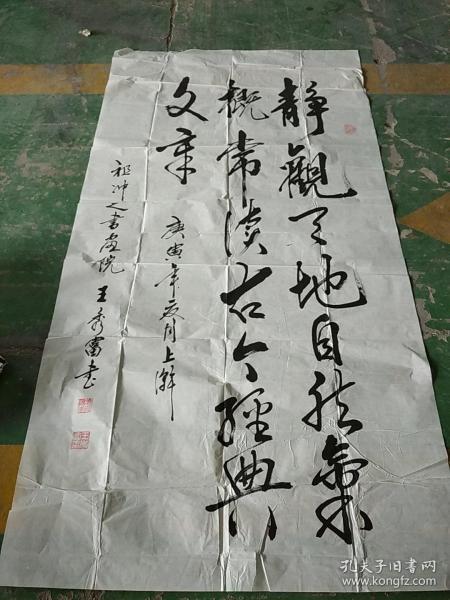 靜觀天地自然氣
概常读古今經典
文章
庚寅年夏月上澣
祖冲之書画院 王秀雷书
孔夫子旧书网
www.kongfz.com